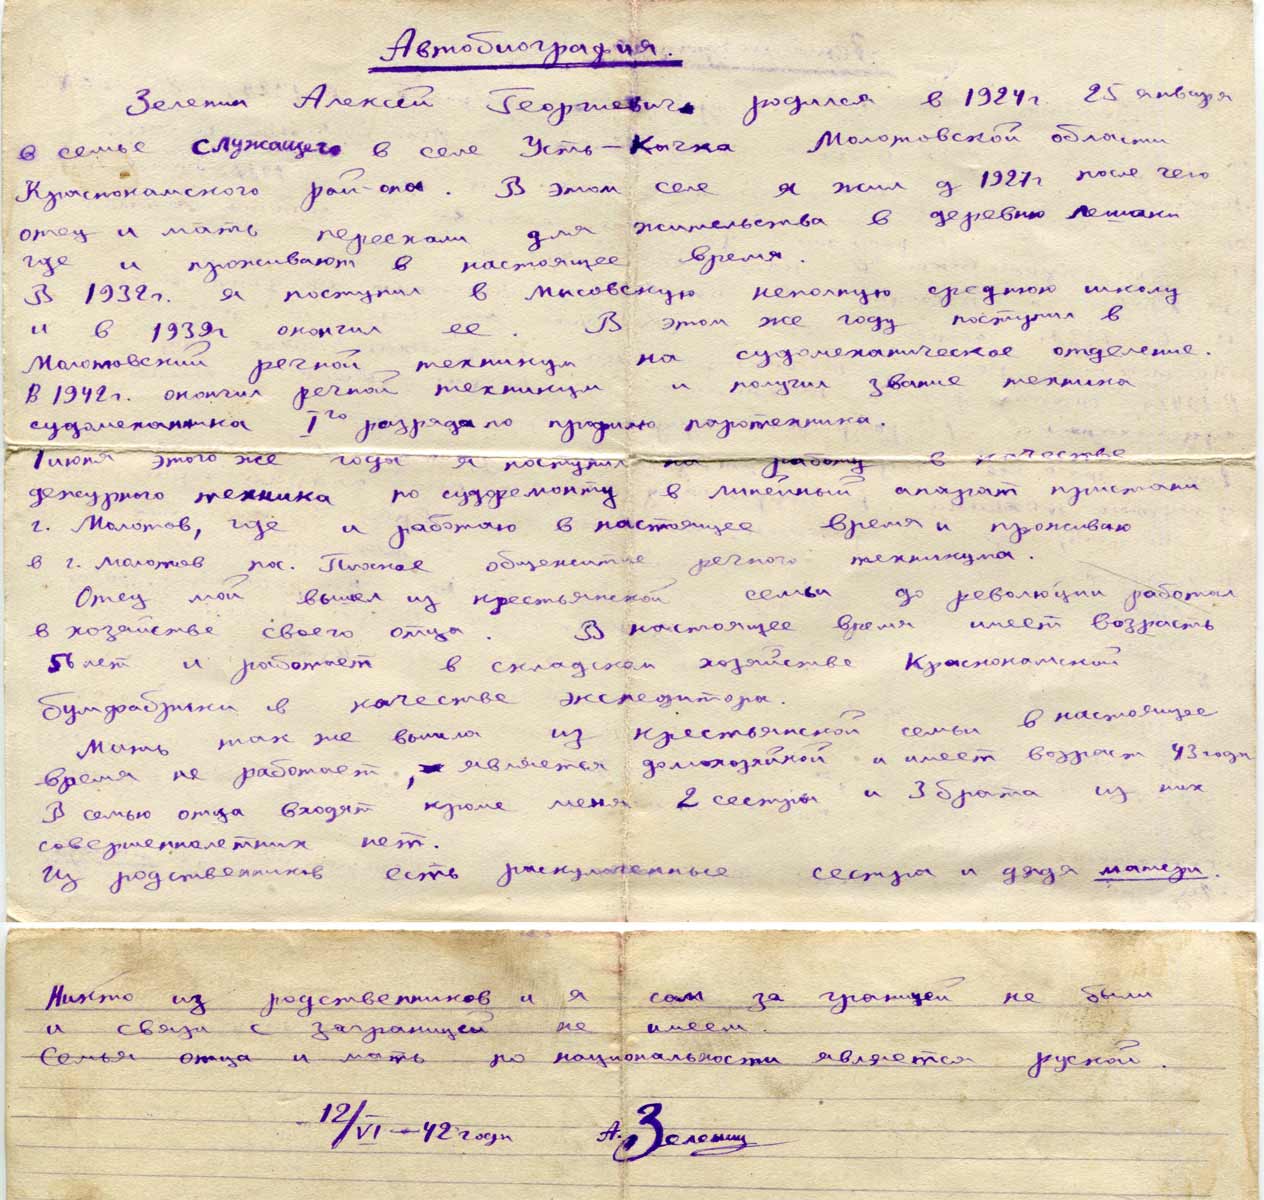 Автобиография.
Зеленин Алексей Георгиевич родился в 1924г. 25 января
в семье служащего в селе Усть-Качка Молотовской области
Краснокамского рай-она. В этом селе я жил д 1927г после чего
отец и мать переехали для жительства в деревню Лешаки
где и проживают в настоящее время.
В 1932г. я поступил в Мысовскую неполную среднюю школу
и в 1939г окончил ее. В этом же году поступил в
Молотовский речной техникум на судомеханическое отделение.
В 1942г. окончил речной техникум и получил звание техника
судомеханика I го разряда по профилю паротехника.
1 июня этого же года я поступил на работу в качестве
дежурного техника по судоремонту в линейный апарат пристани
г. Молотов, где и работаю в настоящее время и проживаю
в г. Молотов пос. Плоское общежитие речного техникума.
Отец мой вышел из крестьянской семьи до революции работал
в хозяйстве своего отца. В настоящее время имеет возрасть
56 лет и работает в складском хозяйстве Краснокамской
бумфабрики в качестве экспедитора.
Мать так же вышла из крестьянской семьи в настоящее
время не работает, являеться домохозяйкой и имеет возраст 43 года
В семью отца входят кроме меня 2 сестры и 3 брата из них
совершеннолетних нет.
Из родственников есть раскулаченные сестра и дядя матери.
Никто из родственников и я сам за границей не были
и связи с заграницей не имеем.
Семья отца и мать по национальности является руской.
12/VI-42 года А. Зеленин